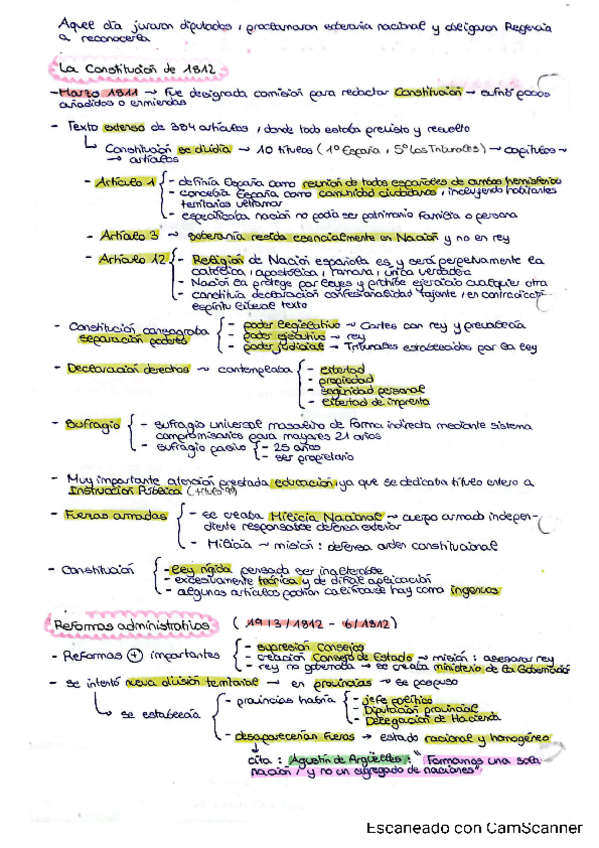 Aquel día juraron diputados, proclamaron soberanía nacional y obligaron Regencia
a reconocerla
La Constitución de 1812
- Marzo 1811 → Fue designada comisión para redactar Constitución → sufrió pocos
añadidos o enmiendas
- Texto extenso de 384 artículos, donde todo estaba previsto y resuelto
↳ Constitución se dividía → 10 títulos (1º España, 5º Los Tribunales) → capítulos →
→ artículos
- Artículo 1 - definía España como reunión de todos españoles de ambos hemisferios
- concebía España como comunidad ciudadanos, incluyendo habitantes
territorios ultramar
- especificaba nación no podía ser patrimonio familia o persona
- Artículo 3 → soberanía residía esencialmente en Nación y no en rey
- Artículo 12 - Religión de Nación española es y será perpetuamente la
católica, apostólica, romana, única verdadera
- Nación la protege por leyes y prohíbe ejercicio cualquier otra
- constituía declaración confesionalidad tajante, en contradicci-
espíritu liberal texto
- Constitución consagraba
separación poderes
- poder legislativo → Cortes con rey y prevalecía
- poder ejecutivo → rey
- poder judicial → Tribunales establecidos por la ley
- Declaración derechos → contemplaba - libertad
- propiedad
- seguridad personal
- libertad de imprenta
- Sufragio - sufragio universal masculino de forma indirecta mediante sistema
compromisarios para mayores 21 años
- sufragio pasivo - 25 años
- ser propietario
- Muy importante atención prestada educación, ya que se dedicaba título entero a
Instrucción Pública
- Fuerzas armadas - se creaba Milicia Nacional → cuerpo armado indepen-
diente responsable defensa exterior
- Milicia → misión: defensa orden constitucional
- Constitución - ley rígida pensada ser inalterable
- excesivamente teórica y de difícil aplicación
- algunos artículos podrían calificarse hoy como ingenuos
Reformas administrativas (19/3/1812 - 6/1812)
- Reformas + importantes - supresión Consejos
- creación Consejo de Estado → misión: asesorar rey
- rey no gobernaba → se creaba ministerio de la Gobernación
- se intentó nueva división territorial → en provincias → se pospuso
↳ se establecía - provincias habría - jefe político
- Diputación provincial
- Delegación de Hacienda
- desaparecerían fueros → estado racional y homogéneo
↓
cita: Agustín de Argüelles: "Formamos una sola
nación, y no un agregado de naciones"
Escaneado con CamScanner